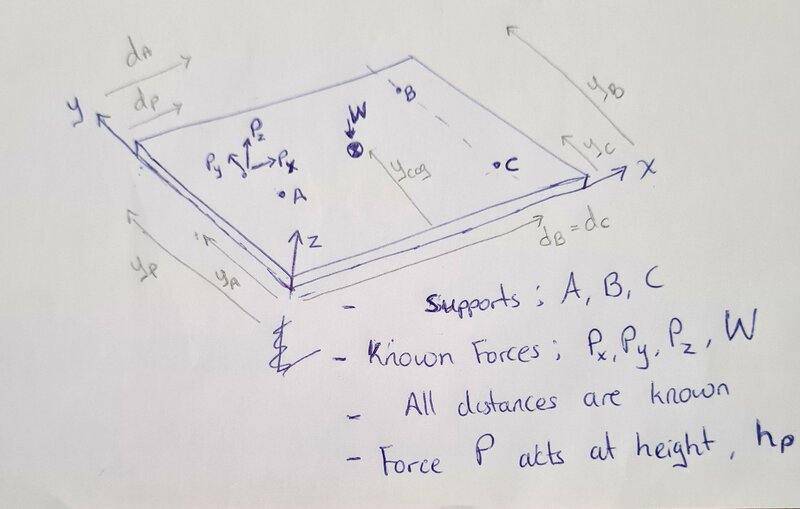 dA
dP
y
yB
B
W
Pz
Py
Px
yC
C
A
ycog
x
z
dB = dC
yP
yA
- Supports ; A, B, C
- Known Forces ; Px, Py, Pz, W
- All distances are known
- Force P acts at height, hp